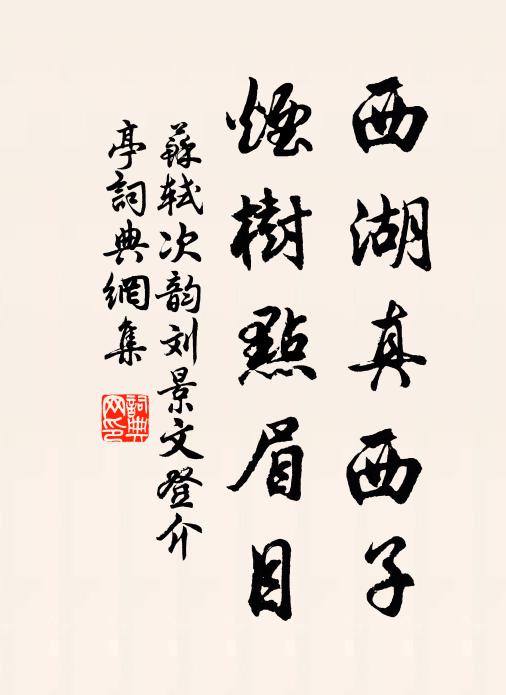 西湖真西子
煙樹點眉目
蘇軾次韵刘景文登介
亭詞典網集
詞典网印